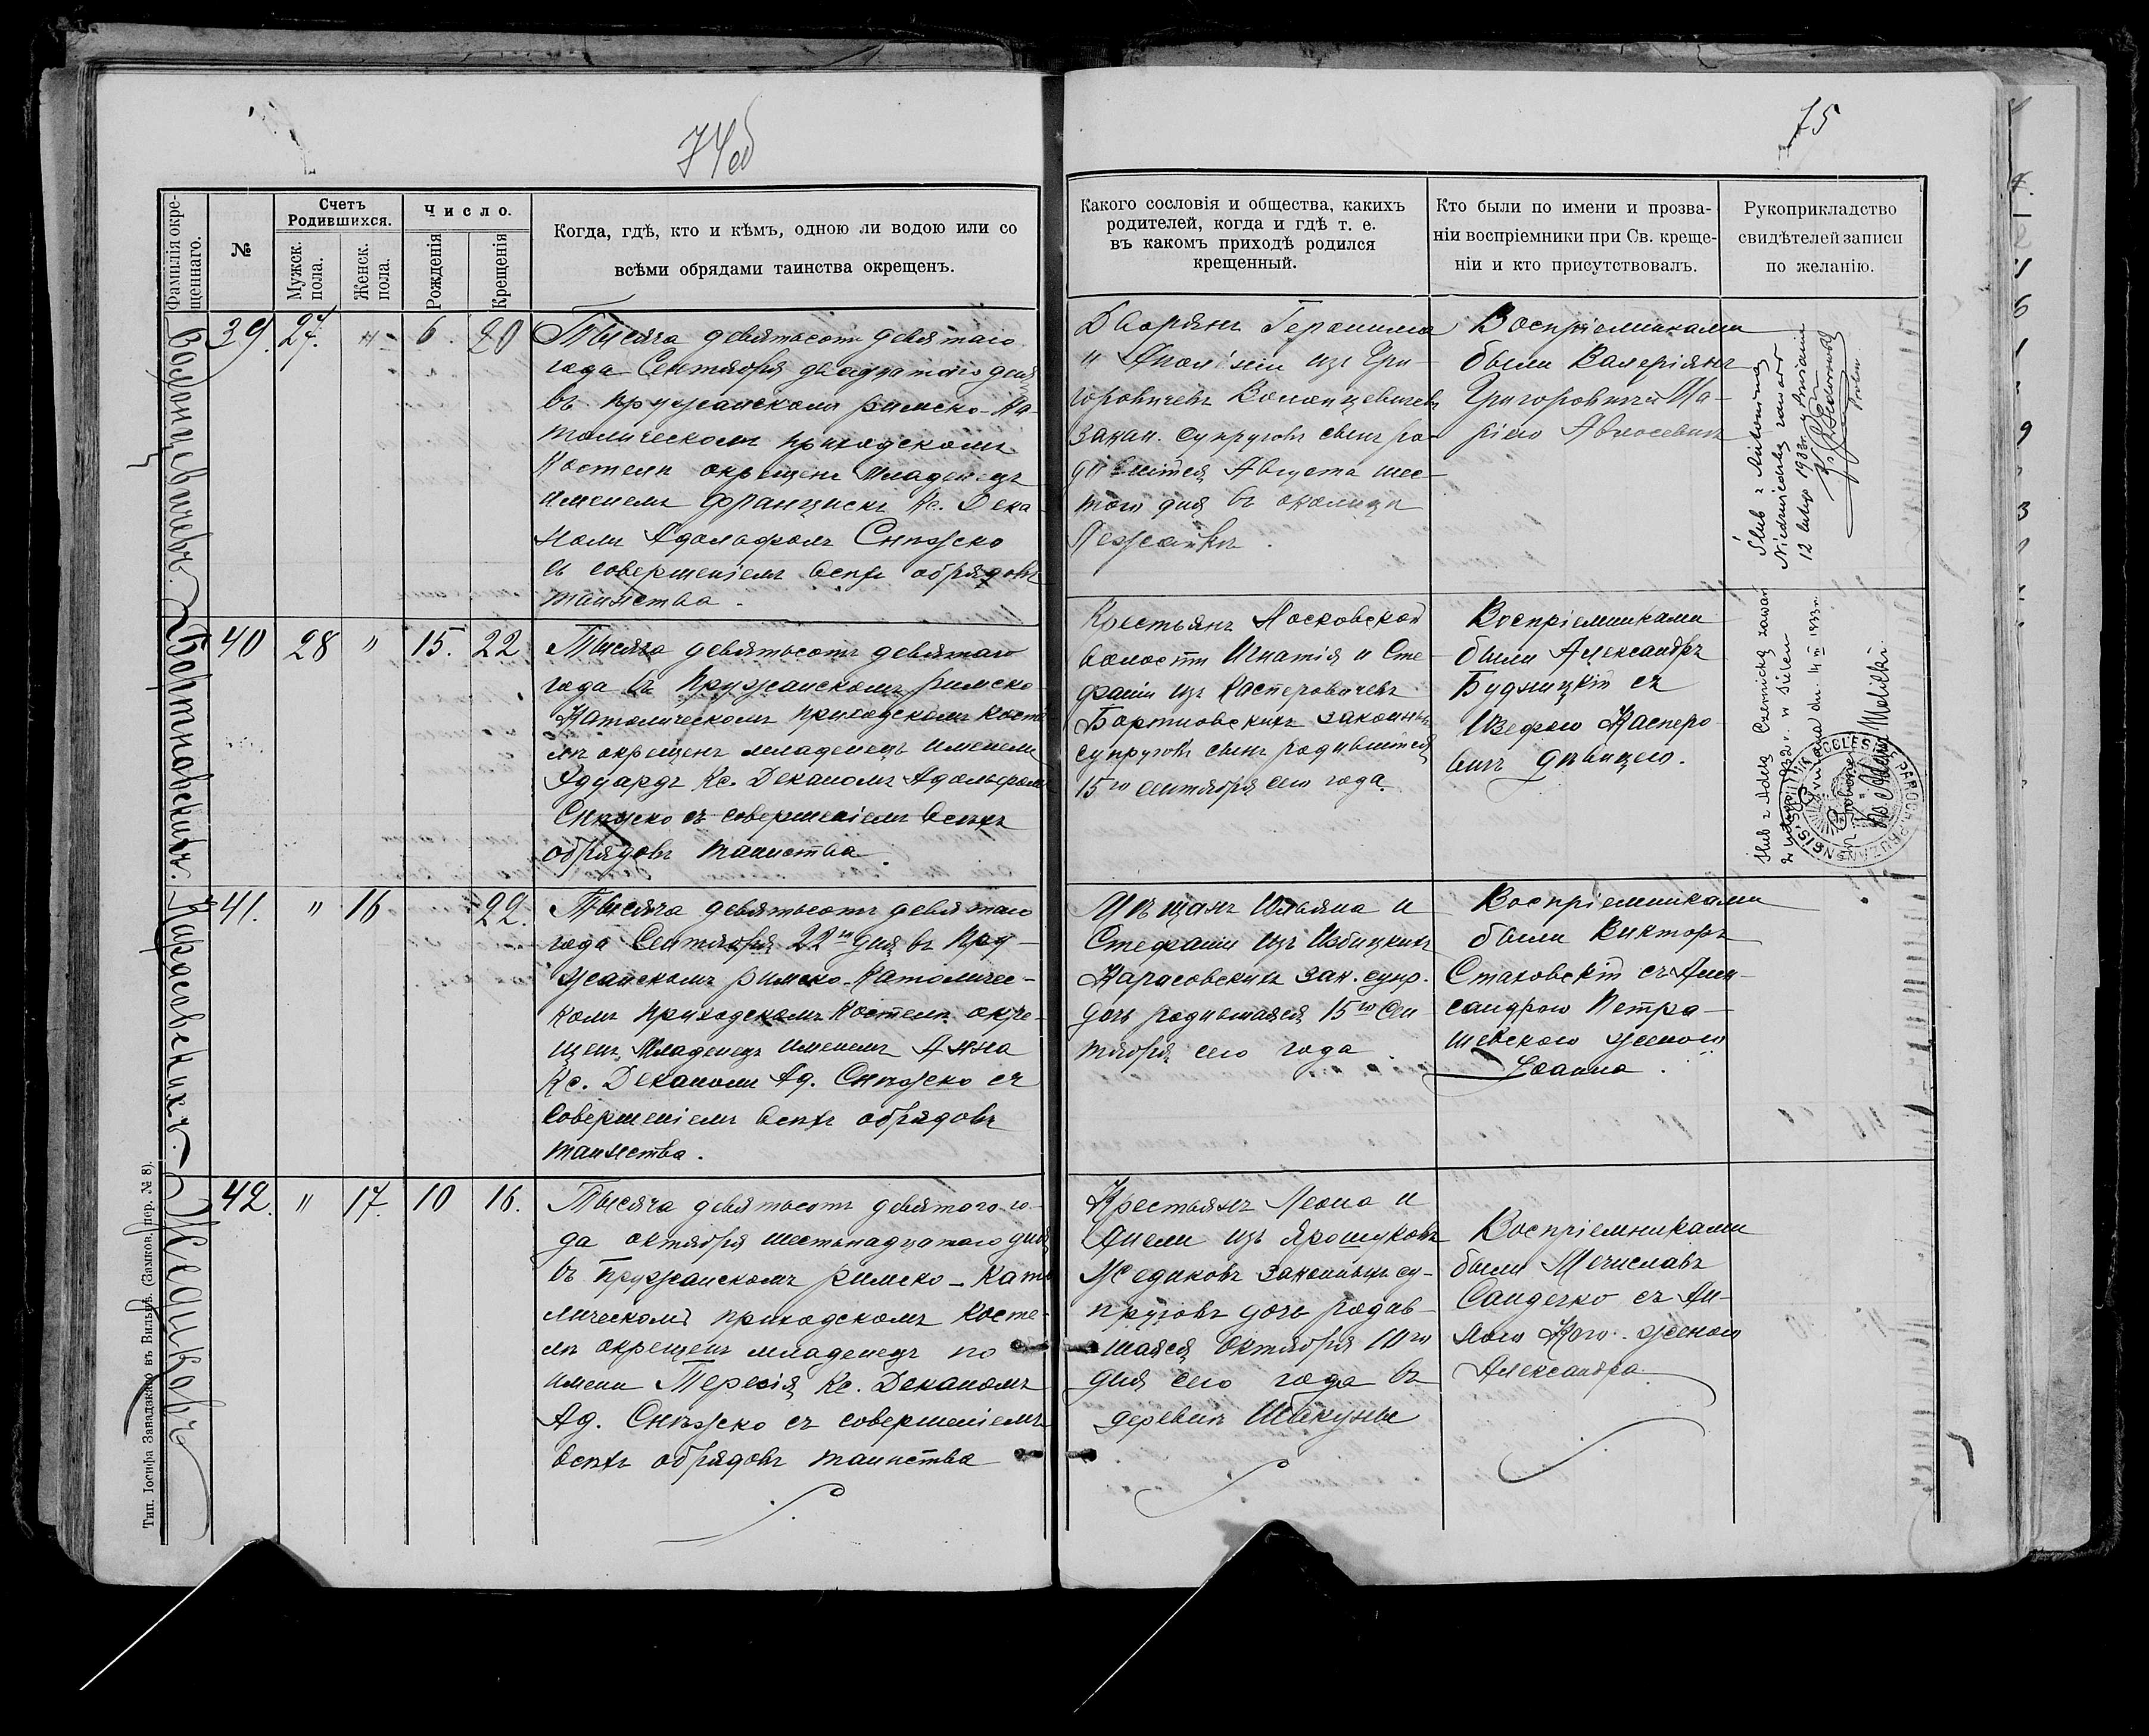 74об
75
Фамилія окре-
щеннаго.
№
Счетъ
Родившихся.
Мужск.
пола.
Женск.
пола.
Число.
Рожденія
Крещенія
Когда, гдѣ, кто и кѣмъ, одною ли водою или со
всѣми обрядами таинства окрещенъ.
Какого сословія и общества, какихъ
родителей, когда и гдѣ т. е.
въ какомъ приходѣ родился
крещенный.
Кто были по имени и прозва-
ніи воспріемники при Св. креще-
ніи и кто присутствовалъ.
Рукоприкладство
свидѣтелей записи
по желанію.
39. 27. " 6. 20
Тысяча девятьсотъ девятаго
года Сентября двадцатаго дня
въ Пружанскомъ римско-ка-
толическомъ приходскомъ
костелѣ окрещенъ младенецъ
именемъ Францискъ Кс. Дека
номъ Адольфомъ Снѣжско
съ совершеніемъ всѣхъ обрядовъ
таинства.
Дворянъ Геронима
и Аполініи изъ Гри-
горовичевъ Волонцевичевъ
закон. супруговъ сынъ ро-
дившійся Августа шес-
того дня въ околицѣ
Воспріемниками
были Валеріянъ
Григоровичъ и Ма-
ріею
Ślub z Antoniną
zawar
12 lutego 1933 r.
40 28 " 15. 22
Тысяча девятьсотъ девятаго
года въ Пружанскомъ римско-
Католическомъ приходскомъ косте
лѣ окрещенъ младенецъ именемъ
Эдуардъ Кс. Деканомъ Адольфомъ
Снѣжско съ совершеніемъ всѣхъ
обрядовъ таинства.
Крестьянъ Носковской
волости Игнатія и Сте-
фаніи изъ Касперовичевъ
Бартновскихъ законныхъ
супруговъ сынъ родившійся
15го сентября сего года.
Воспріемниками
были Александръ
Будницкій съ
Юзефою Касперо-
вичъ дѣвицею.
Ślub z Adelą Czernicką zawar
Ks. Adam Malicki.
41. " 16 22.
Тысяча девятьсотъ девятаго
года Сентября 22го дня въ Пру-
жанскомъ римско-Католичес-
комъ приходскомъ Костелѣ окре-
щенъ младенецъ именемъ Анна
Кс. Деканомъ Ад. Снѣжско съ
совершеніемъ всѣхъ обрядовъ
таинства.
Мѣщанъ Юльяна и
Стефаніи изъ Избицкихъ
Карасовскихъ зак. супр.
дочь родившаяся 15го Сен
тября сего года.
Воспріемниками
были Викторъ
Стаховскій съ Алек-
сандрою Петра-
шевскою женою
Іоанна.
42. " 17. 10 16.
Тысяча девятьсотъ девятого го-
да октября шестьнадцатаго дня
въ Пружанскомъ римско-Като
лическомъ приходскомъ Косте-
лѣ окрещенъ младенецъ по
имени Терезія Кс. Деканомъ
Ад. Снѣжско съ совершеніемъ
всѣхъ обрядовъ таинства
Крестьянъ Леона и
Анели изъ Ярошуковъ
Жедиковъ законныхъ су-
пруговъ дочь родив-
шаяся Октября 10го
дня сего года въ
деревнѣ Шакуны
Воспріемниками
были Мечиславъ
Сандечко съ Ан-
ною женою
Александра.
Волонцевичевъ.
Бартновскихъ.
Карасовскихъ.
Жедиковъ
Тип. Іосифа Завадзкаго въ Вильнѣ. (Замков. пер. № 8).